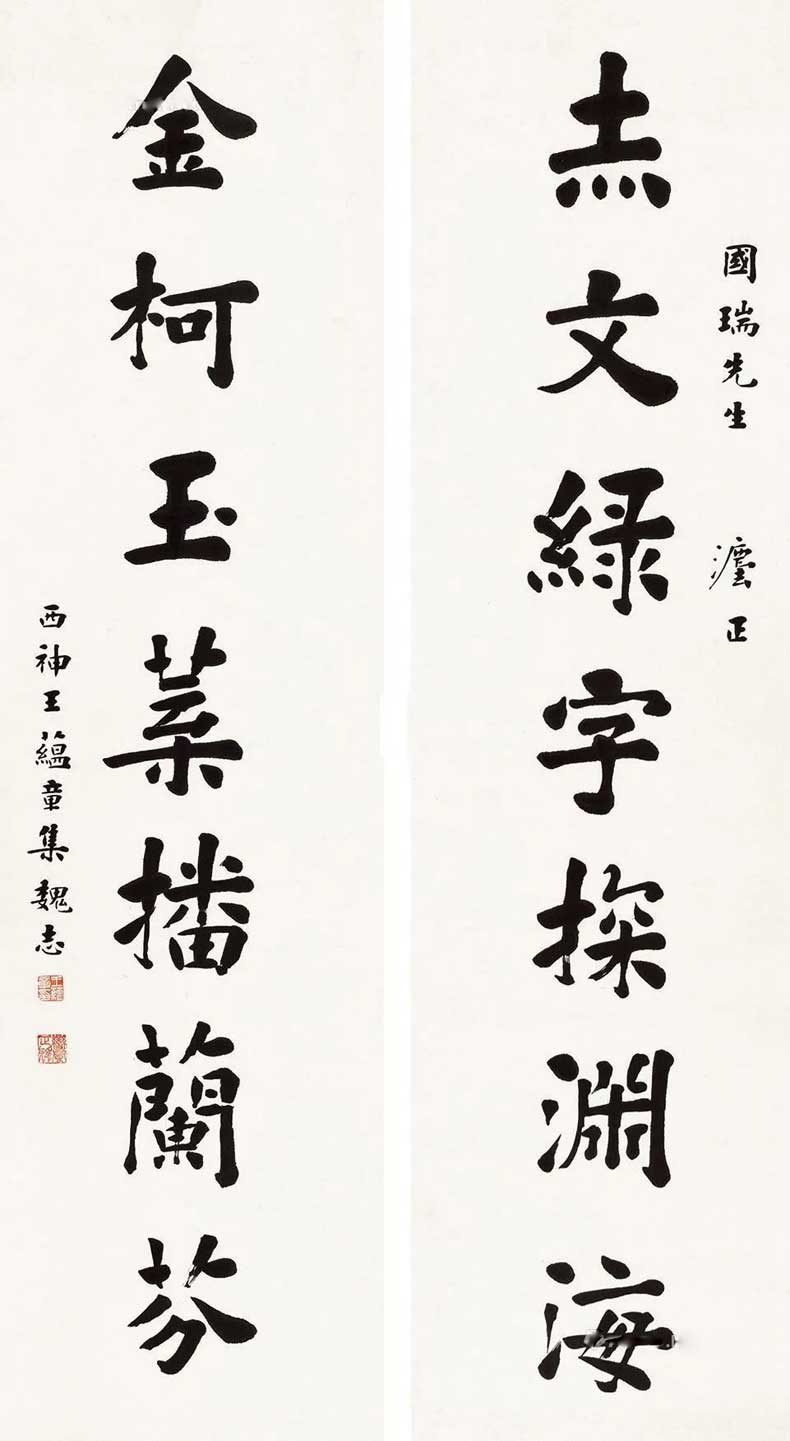 國瑞先生 灋正
赤文綠字探淵海
金柯玉葉播蘭芬
西神王蘊章集魏志